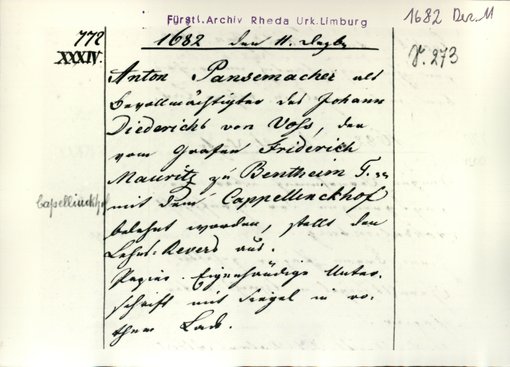 Fürstl. Archiv Rheda Urk. Limburg
1682 Dez. 11
V. 273
772
XXXIV.
1682 den 11. Dezbr
Anton Pansemacher als
Bevollmächtigter des Johann
Diederichs von Voss, der
vom Grafen Friderich
Mauritz zu Bentheim T.
mit dem Cappellinckhof
belehnt worden, stellt den
Lehns-Revers aus.
Papier. Eigenhändige Unter-
schrift mit Siegel in ro-
them Lack.
Capellinckhof